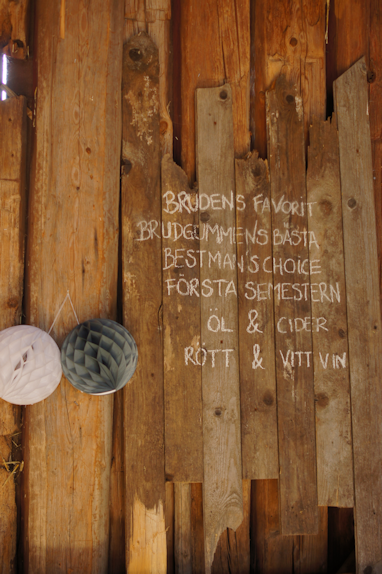 BRUDENS FAVORIT
BRUDGUMMENS BÄSTA
BESTMAN'S CHOICE
FÖRSTA SEMESTERN
ÖL & CIDER
RÖTT & VITT VIN